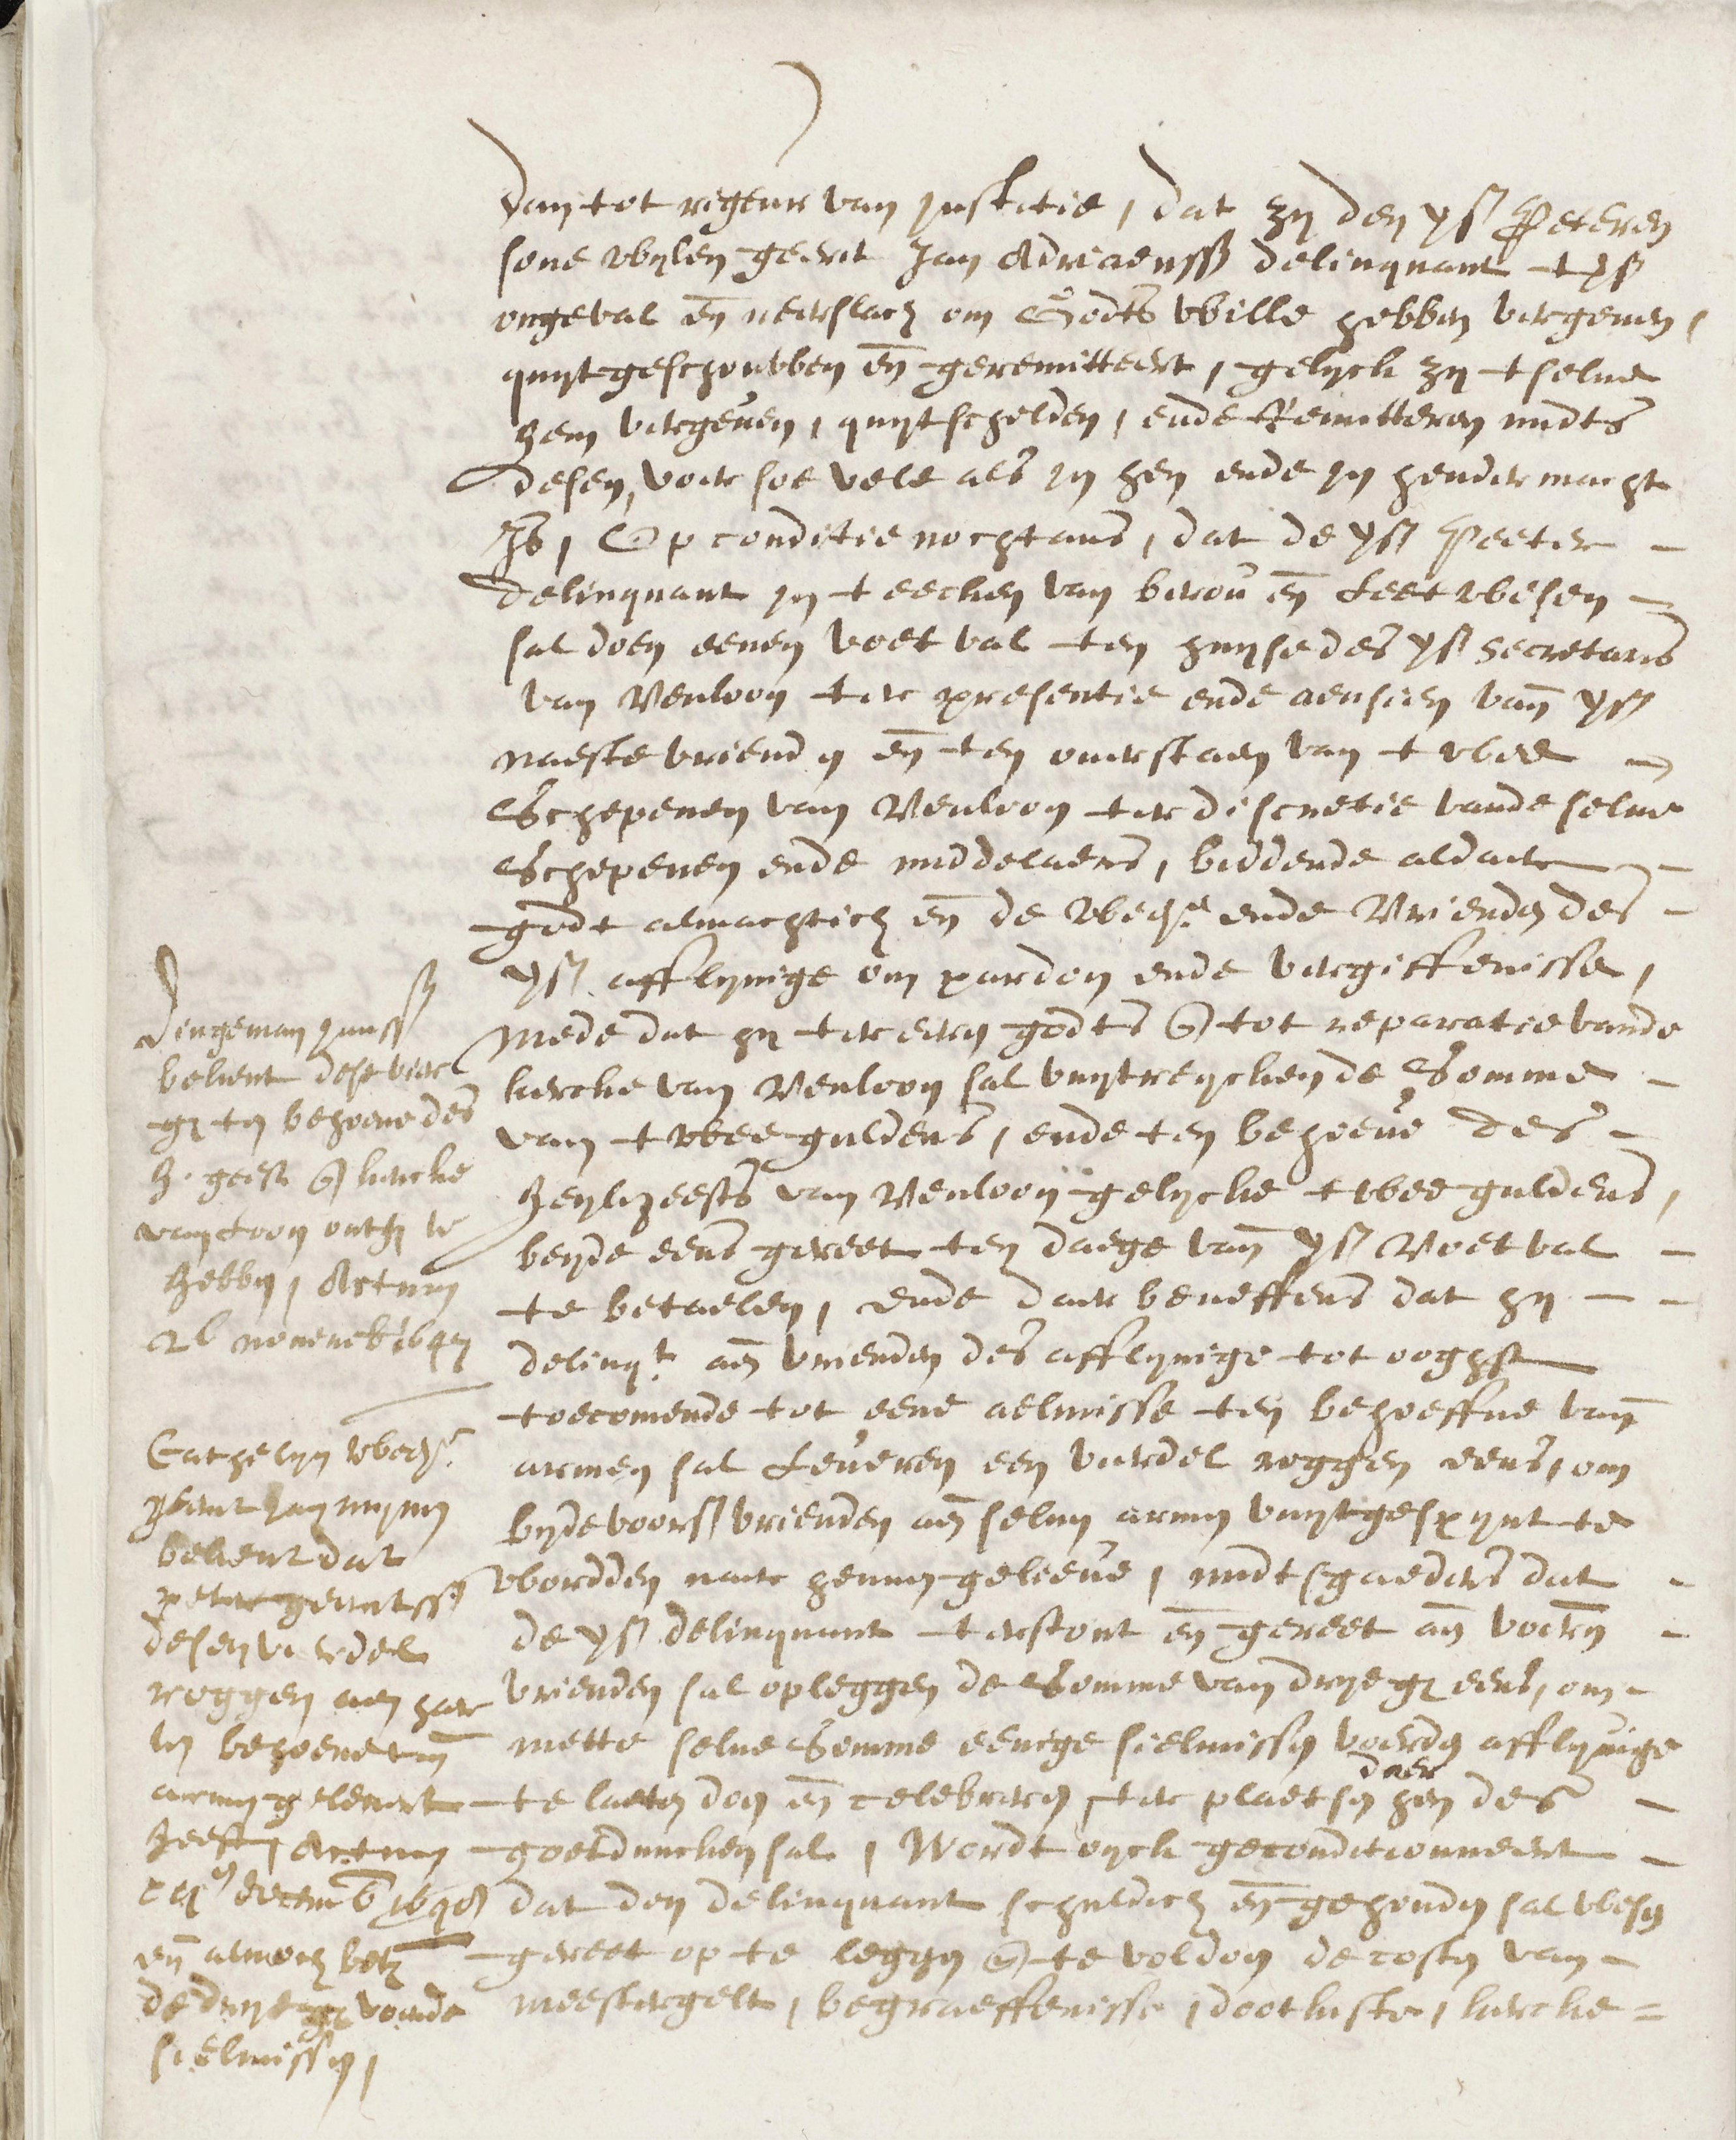 dan tot rigeur van justitie, dat zy den vs. Peteren
sone wylen Geerit Jan Adriaenss delinquant t vs.
ongeval en neerslach om Godts wille hebben vergeven,
quytgeschouwen en geremitteert, gelyck zy tselve
hem vergeven, quytschelden, ende Remitteren midts
desen, voer soe vele als in hen ende in hender macht
Is, Op conditie nochtans, dat de vs. Peeter -
delinquant in teecken van berou en Leetwesen -
sal doen eenen voetval ten huyse des vs. Secretaris
van Venloon ter presentie ende aensien van vs.
naeste vrienden en ten overstaen van twee
Schepenen van Venloon ter discretie vande selve
Schepenen ende middelaers, biddende aldaer -
godt almachtich en de wede. ende Vrienden des -
vs. afflyvige om pardon ende vergiffenisse,
mede dat hy ter eeren godts en tot reparatie vande
kercke van Venloon sal uuytreycken de Somme -
van twee guldens, ende ten behoeve des -
heylichgeests van Venloon gelycke twee guldens,
beyde eens gereet ten daege van vs. Voetval -
te betaelen, ende daer beneffens dat hy - -
delinqt. aen vrienden des afflyvige tot ooghst
toecomende tot eene aelmisse ten behoeffve van
armen sal Leveren een vierdel roggen eens, om
byde voors. vrienden aen selven armen uuytgespynt te
wordden naer hennen geliefve, midtsgaeders dat -
de vs. delinquant terstont en gereet aen voorn. -
vrienden sal opleggen de Somme van drye gl eens, om -
mette selve Somme eenige sielmissen voerden afflyvige
te laeten doen en celebreren, ter plaetsen daer hen des -
goetduncken sal, Wordt oyck geconditionneert -
dat den delinquant schuldich en gehouden sal wesen
gereet op te leggen en te voldoen de costen van -
meestergelt, begraeffenisse, dootkiste, kercke =

Dingeman Janss
bekent dese vier
gl ten behoeve des
H. geest en kercke
van Loon ontfn te
hebben, Actum
novemb

Cathelyn wede.
Jan
bekent dat
peter geeritss
desen vierdel
roggen aen haer
ten behoeve van
armen gelevert
heeft, Actum
decemb
en alnoch bet
de drye gl vande
sielmissen,